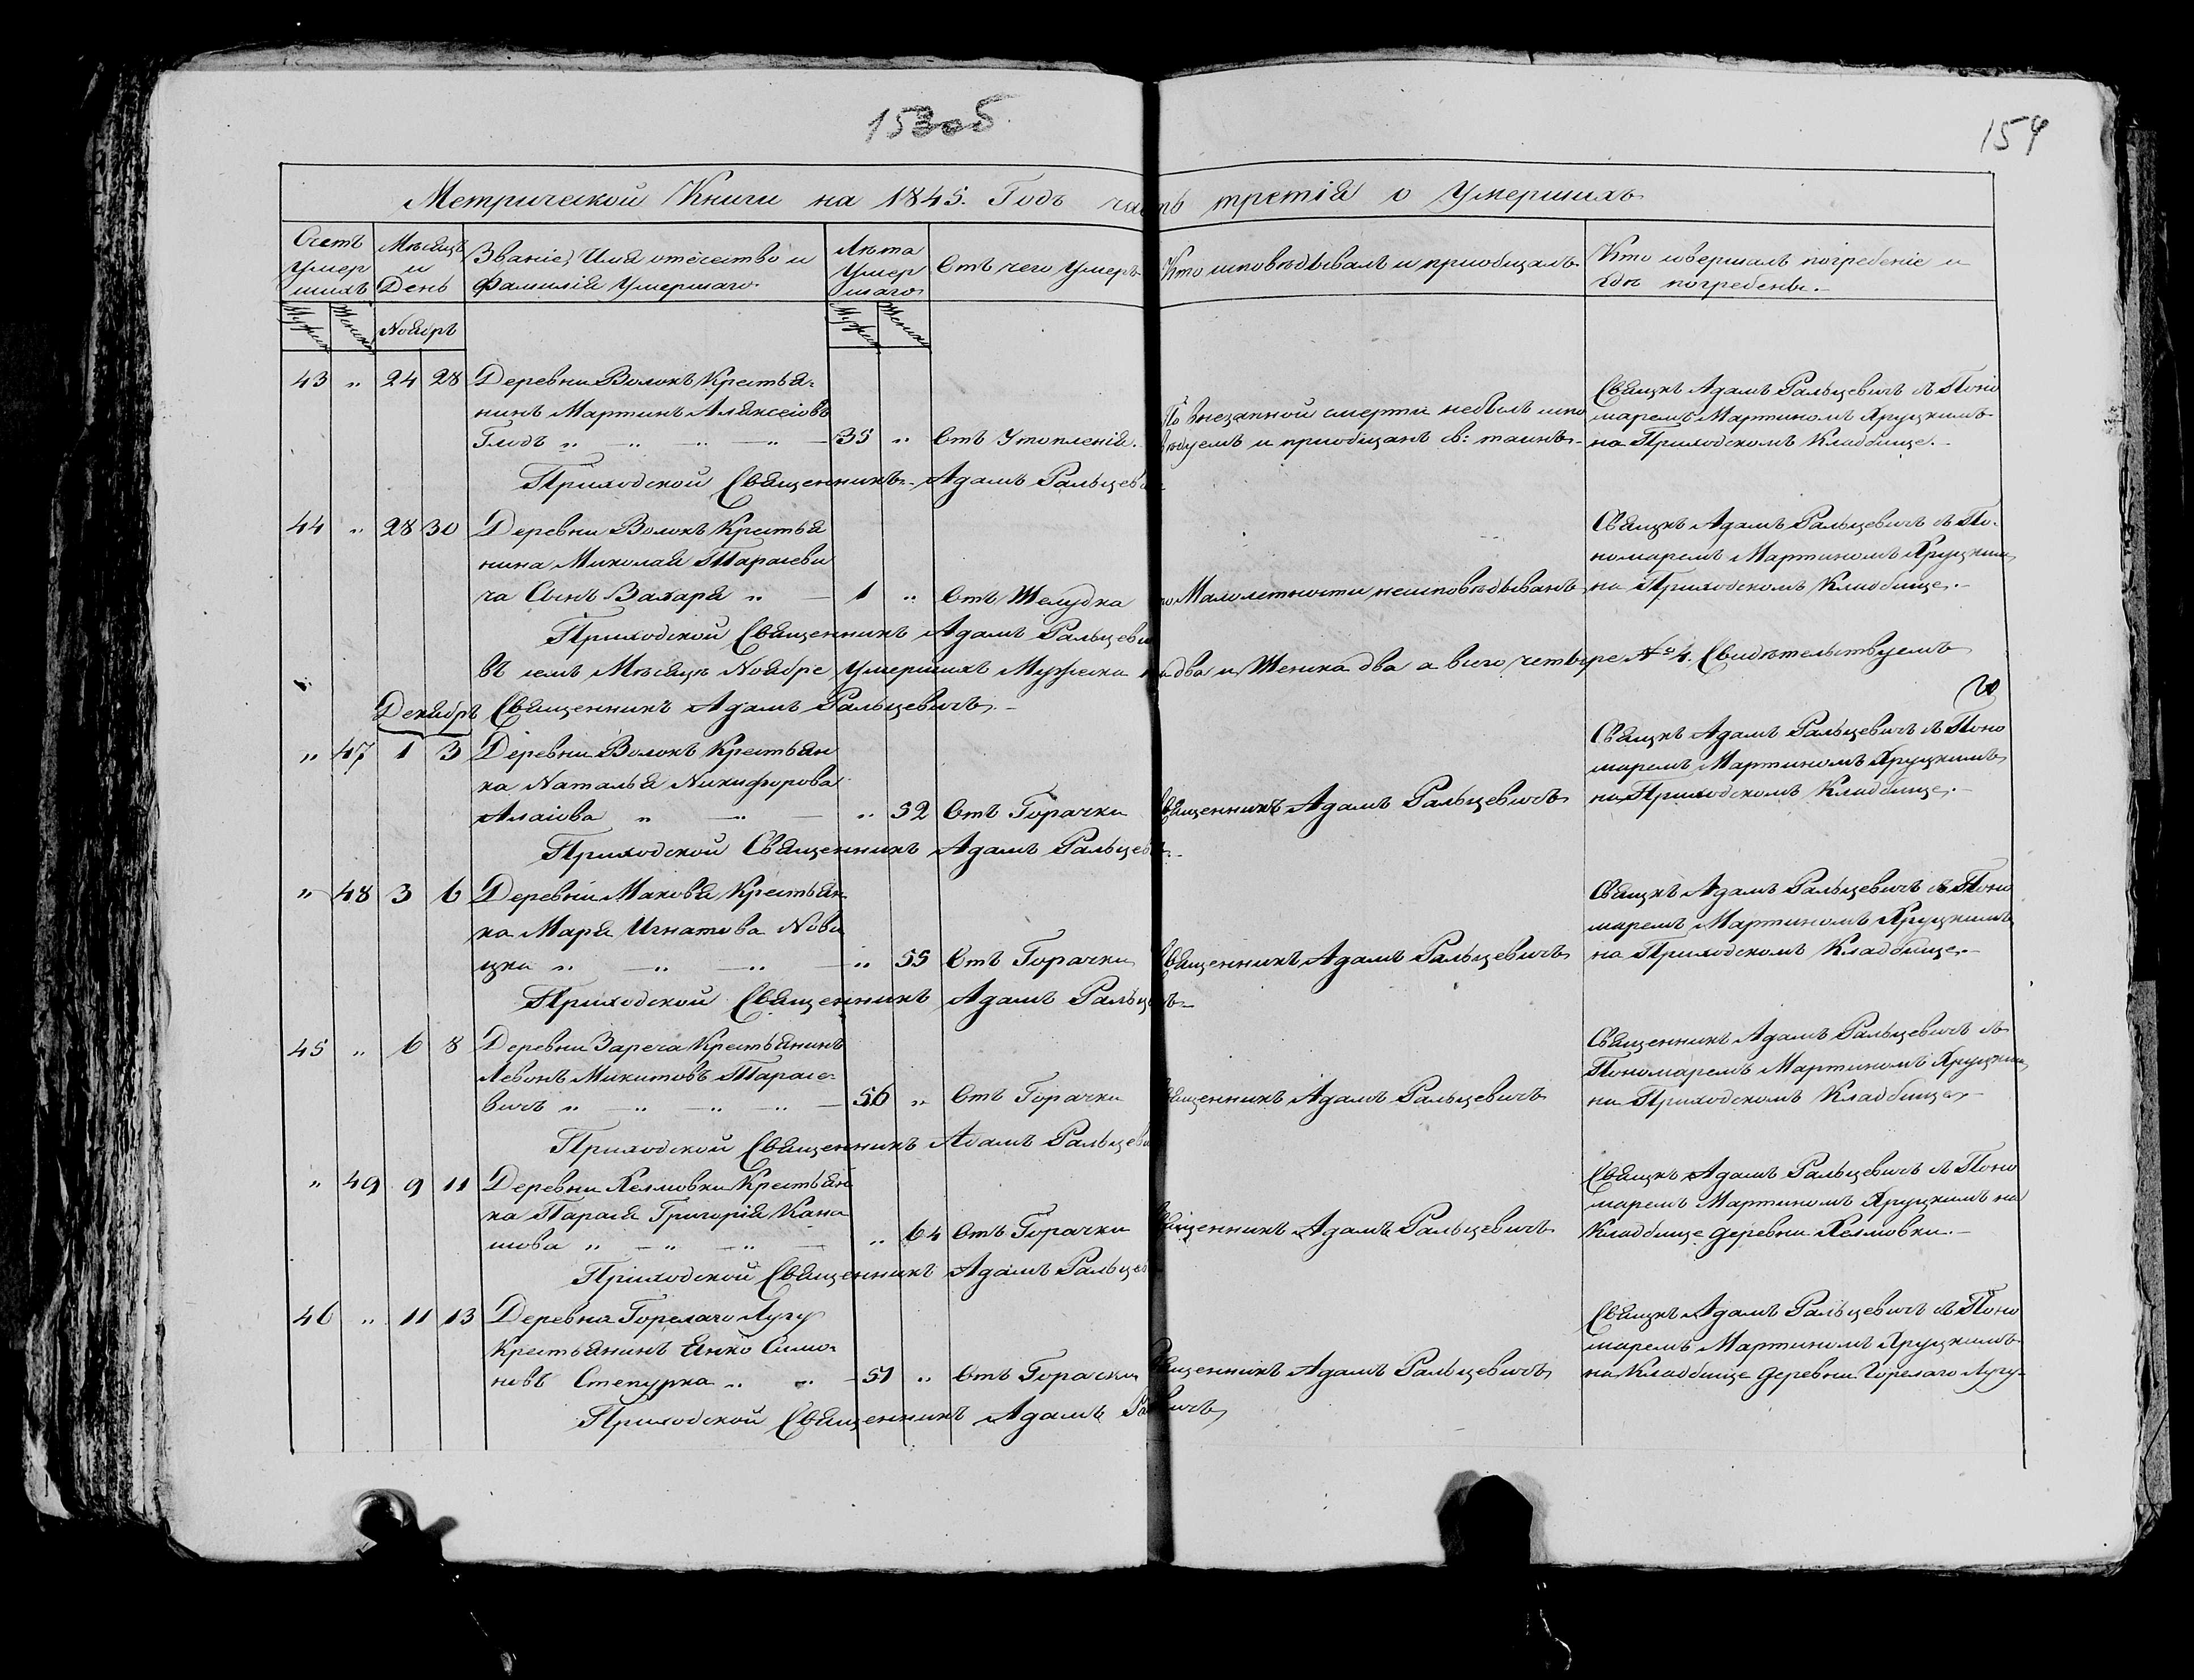 153об
154
Метрической Книги на 1845. Годъ часть третія о Умершихъ
Счетъ Умершихъ
Мѣсяцъ и День
Званіе, Имя отечество и Фамилія Умершаго.
Лѣта Умершаго
Отъ чего Умеръ
Кто исповѣдывалъ и приобщалъ.
Кто совершалъ погребеніе и гдѣ погребены.
Мужск Женск
Ноябръ
Мужск Женск
43 " 24 28 Деревни Волокъ Крестья-
нинъ Мартинъ Алексіовъ
Глодъ " — " — " — 35 " Отъ Утопленія.
По внезапной смерти небылъ испо
вѣдуемъ и приобщанъ с: таинъ.
Свящнъ Адамъ Ральцевичъ съ Поно
маремъ Мартиномъ Хруцкимъ
на Приходскомъ Кладбище.
Приходской Священникъ Адамъ Ральцеви
44 " 28 30 Деревни Волокъ Крестья
нина Миколая Тарасеви
ча Сынъ Захаря " — 1 " Отъ Желудка
по Малолетности неисповѣдыванъ
Свящнъ Адамъ Ральцевичъ съ По-
номаремъ Мартиномъ Хруцким
на Приходскомъ Кладбище.
Приходской Священникъ Адамъ Ральцеви
въ семъ Мѣсяцѣ Ноябре Умершихъ Мужеска два и Женска два а всего четыре № 4. Свидѣтельствуемъ
Священникъ Адамъ Ральцевичъ
Декабръ
" 47 1 3 Деревни Волокъ Крестьян
ка Наталья Никифорова
Аласова " — " — " 52 Отъ Горачки
Священникъ Адамъ Ральцевичъ
Свящнъ Адамъ Ральцевичъ съ Поно
маремъ Мартиномъ Хруцкимъ
на Приходскомъ Кладбище.
Приходской Священникъ Адамъ Ральцеви
" 48 3 6 Деревни Маковья Крестьян
ка Маря Игнатова Нови
цка " — " — " — " 55 Отъ Горачки
Священникъ Адамъ Ральцевичъ
Свящнъ Адамъ Ральцевичъ съ Поно
маремъ Мартиномъ Хруцкимъ
на Приходскомъ Кладбище.
Приходской Священникъ Адамъ Ральцевичъ
45 " 6 8 Деревни Зареча Крестьянинъ
Левонъ Микитовъ Тарасе-
вичъ " — " — " — " — 56 " Отъ Горачки
Священникъ Адамъ Ральцевичъ
Священникъ Адамъ Ральцевичъ съ
Пономаремъ Мартиномъ Хруцким
на Приходскомъ Кладбище.
Приходской Священникъ Адамъ Ральцеви
" 49 9 11 Деревни Хелмовки Крестьян
ка Парася Григорія Кана
шова " — " — " — " 64 Отъ Горачки
Священникъ Адамъ Ральцевичъ
Свящнъ Адамъ Ральцевичъ съ Поно
маремъ Мартиномъ Хруцкимъ на
Кладбище деревни Хелмовки.
Приходской Священникъ Адамъ Ральцев
46 " 11 13 Деревни Горелаго Лугу
Крестьянинъ Янко Симо-
новъ Степурка " " — 51 " Отъ Горачки
Священникъ Адамъ Ральцевичъ
Свящнъ Адамъ Ральцевичъ съ Поно
маремъ Мартиномъ Хруцкимъ
на Кладбище деревни Горелаго Лугу
Приходской Священникъ Адамъ Ральцевичъ